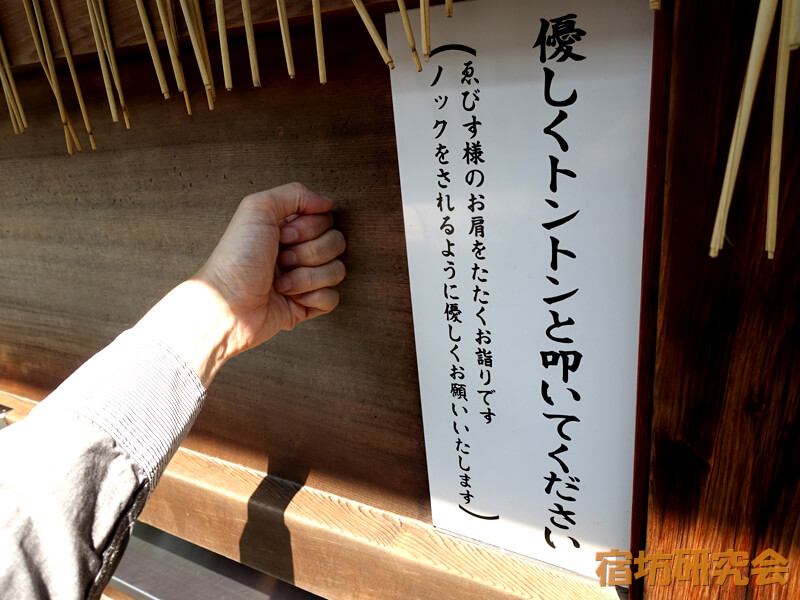 優しくトントンと叩いてください
(ゑびす様のお肩をたたくお詣りです
ノックをされるように優しくお願いいたします)
宿坊研究会